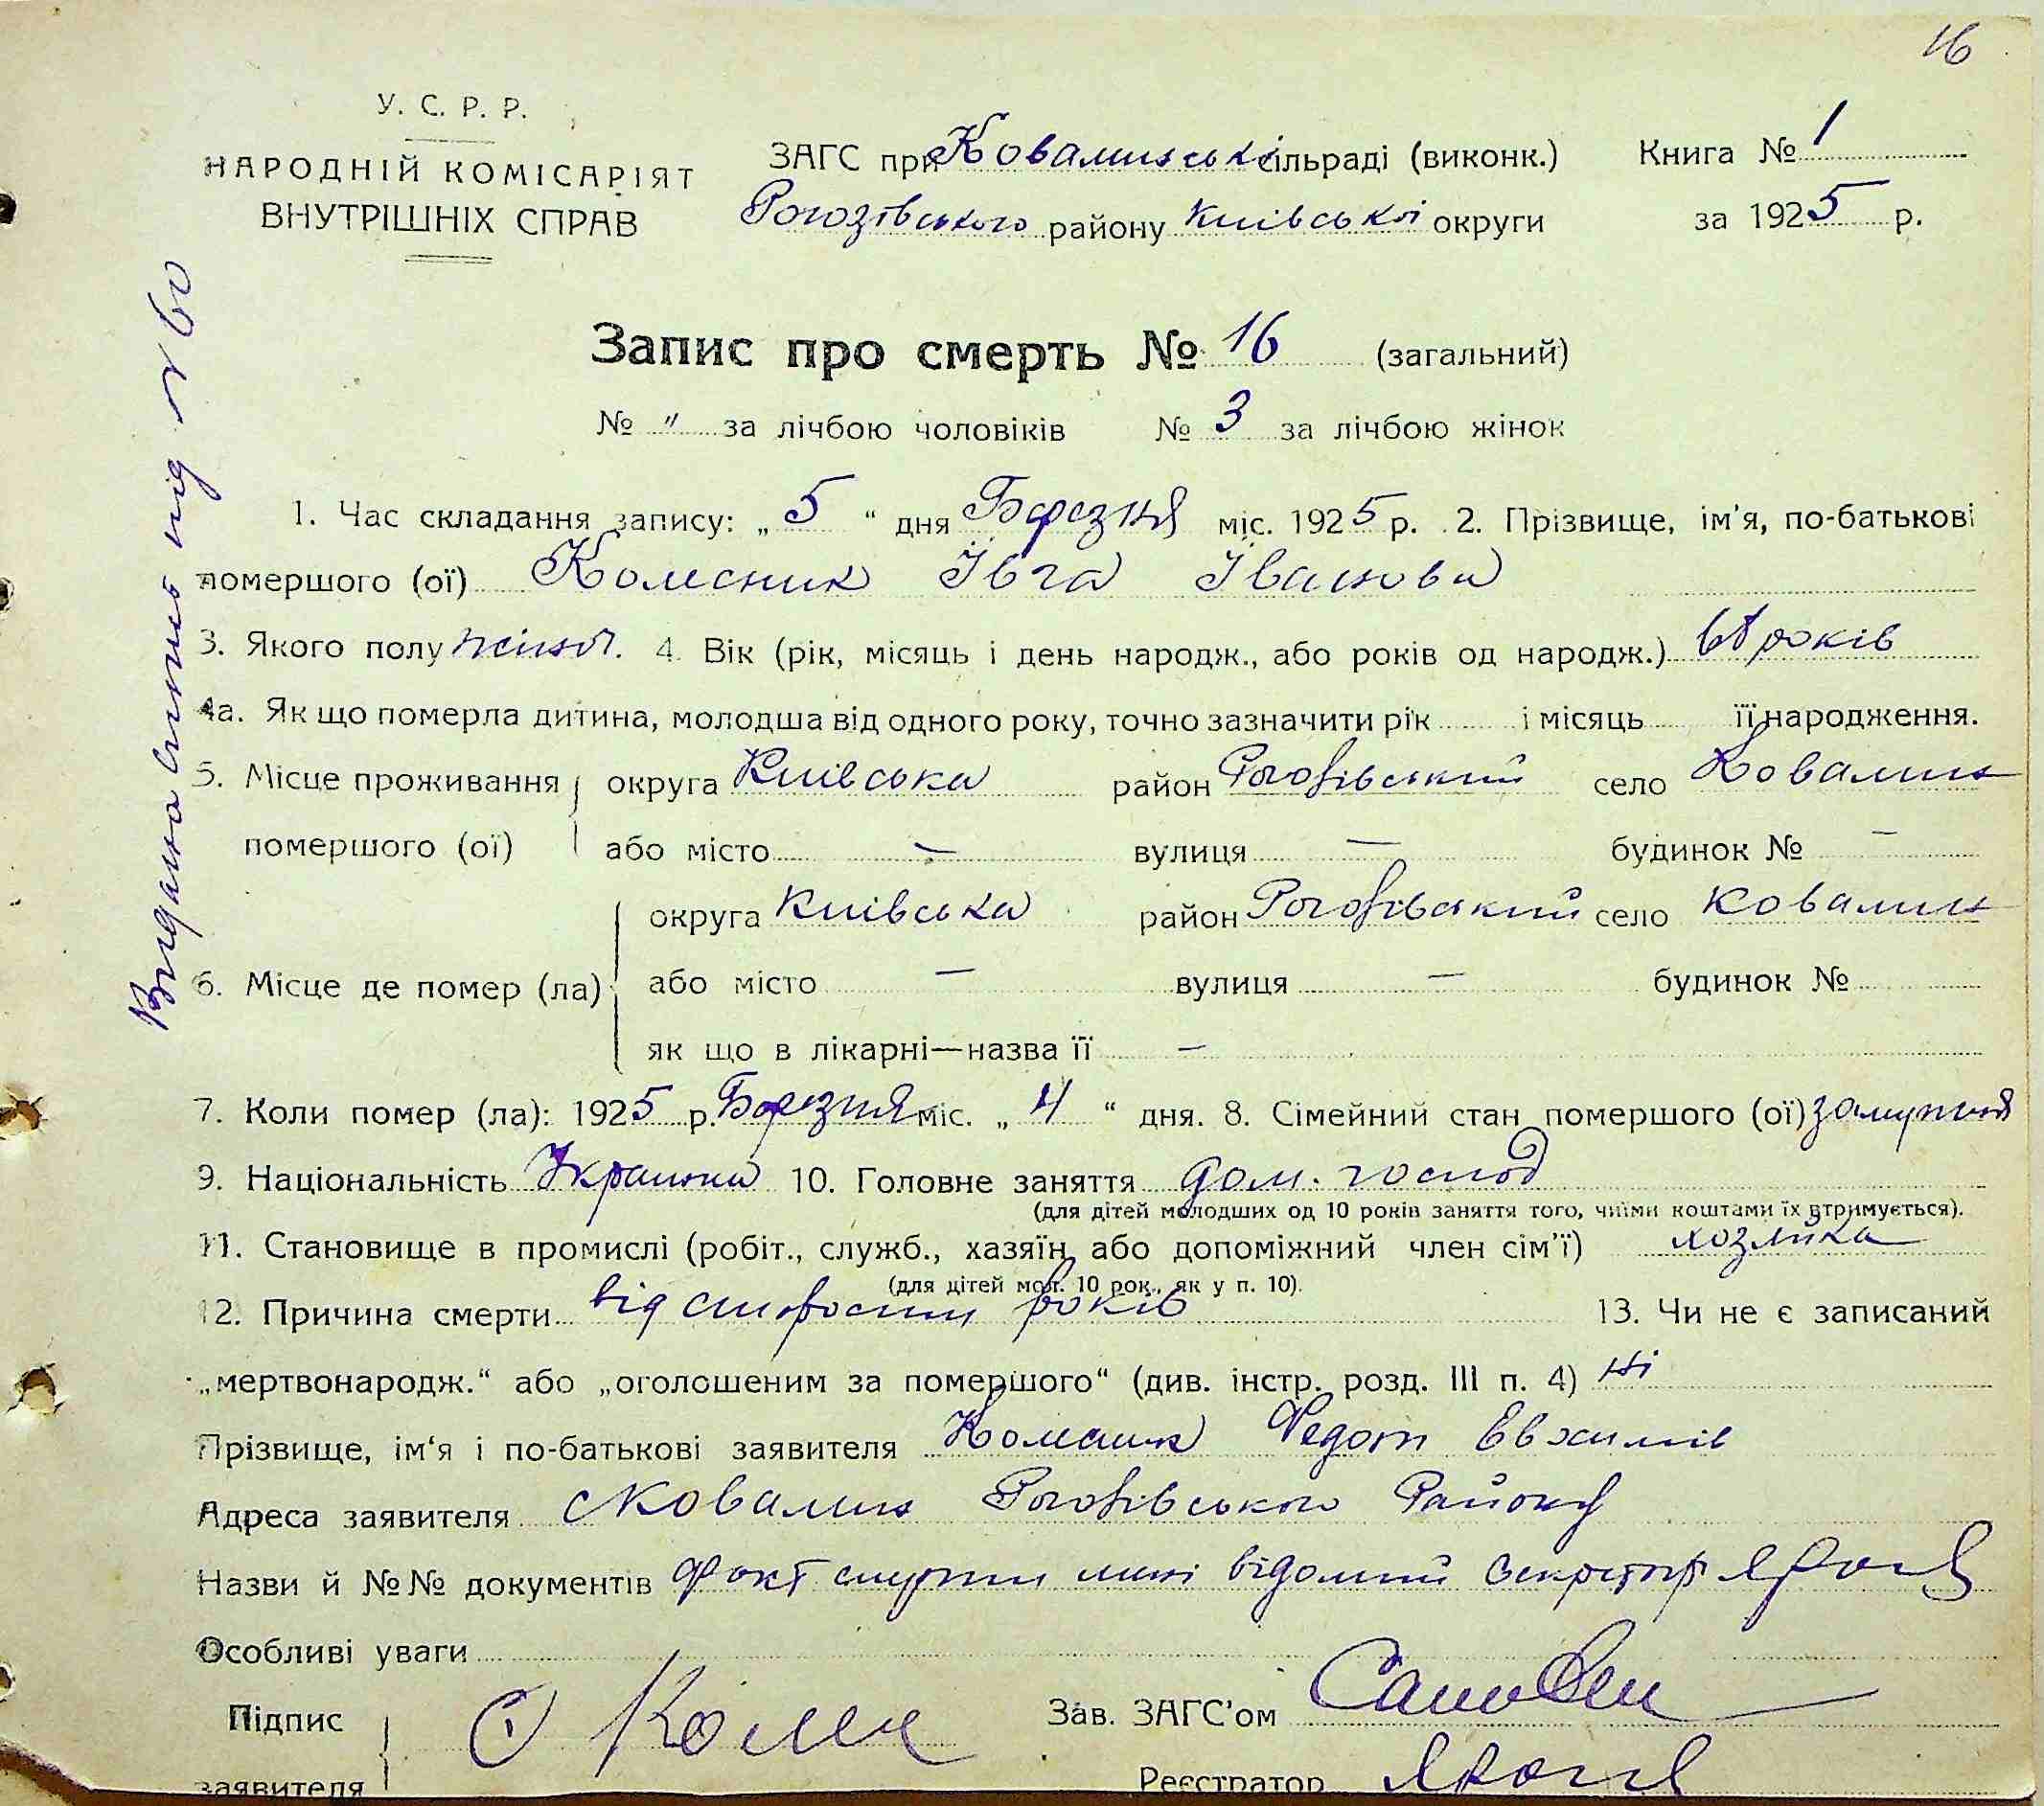 16
У. С. Р. Р.
НАРОДНІЙ КОМІСАРІЯТ
ВНУТРІШНІХ СПРАВ
ЗАГС при Ковалинській сільраді (виконк.)
Рогозівського району Київської округи
Книга № 1
за 1925 р.
Запис про смерть № 16 (загальний)
№ " за лічбою чоловіків № 3 за лічбою жінок
1. Час складання запису: „ 5 “ дня Березня міс. 1925 р. 2. Прізвище, ім'я, по-батькові
помершого (ої) Колесник Івга Іванова
3. Якого полу жіноч. 4. Вік (рік, місяць і день народж., або років од народж.) років
4а. Як що померла дитина, молодша від одного року, точно зазначити рік і місяць її народження.
5. Місце проживання округа Київська район Рогозівський село Ковалин
помершого (ої) або місто — вулиця — будинок № —
округа Київська район Рогозівський село Ковалин
6. Місце де помер (ла) або місто — вулиця — будинок №
як що в лікарні—назва її —
7. Коли помер (ла): 1925 р. Березня міс. „ 4 “ дня. 8. Сімейний стан помершого (ої) замужня
9. Національність Українка 10. Головне заняття дом. господ
(для дітей молодших од 10 років заняття того, чиїми коштами їх втримується).
11. Становище в промислі (робіт., служб., хазяїн, або допоміжний член сім'ї) хозяйка
(для дітей мол. 10 рок., як у п. 10).
12. Причина смерти від старости років 13. Чи не є записаний
„мертвонародж.“ або „оголошеним за помершого“ (див. інстр. розд. III п. 4) ні
Прізвище, ім'я і по-батькові заявителя Колесник Федот Евхимів
Адреса заявителя с Ковалин Рогозівського Району
Назви й №№ документів Факт смерти мені відомий Секретар
Особливі уваги
Підпис
заявителя
Зав. ЗАГС'ом
Реєстратор
Видано витяг під № 60